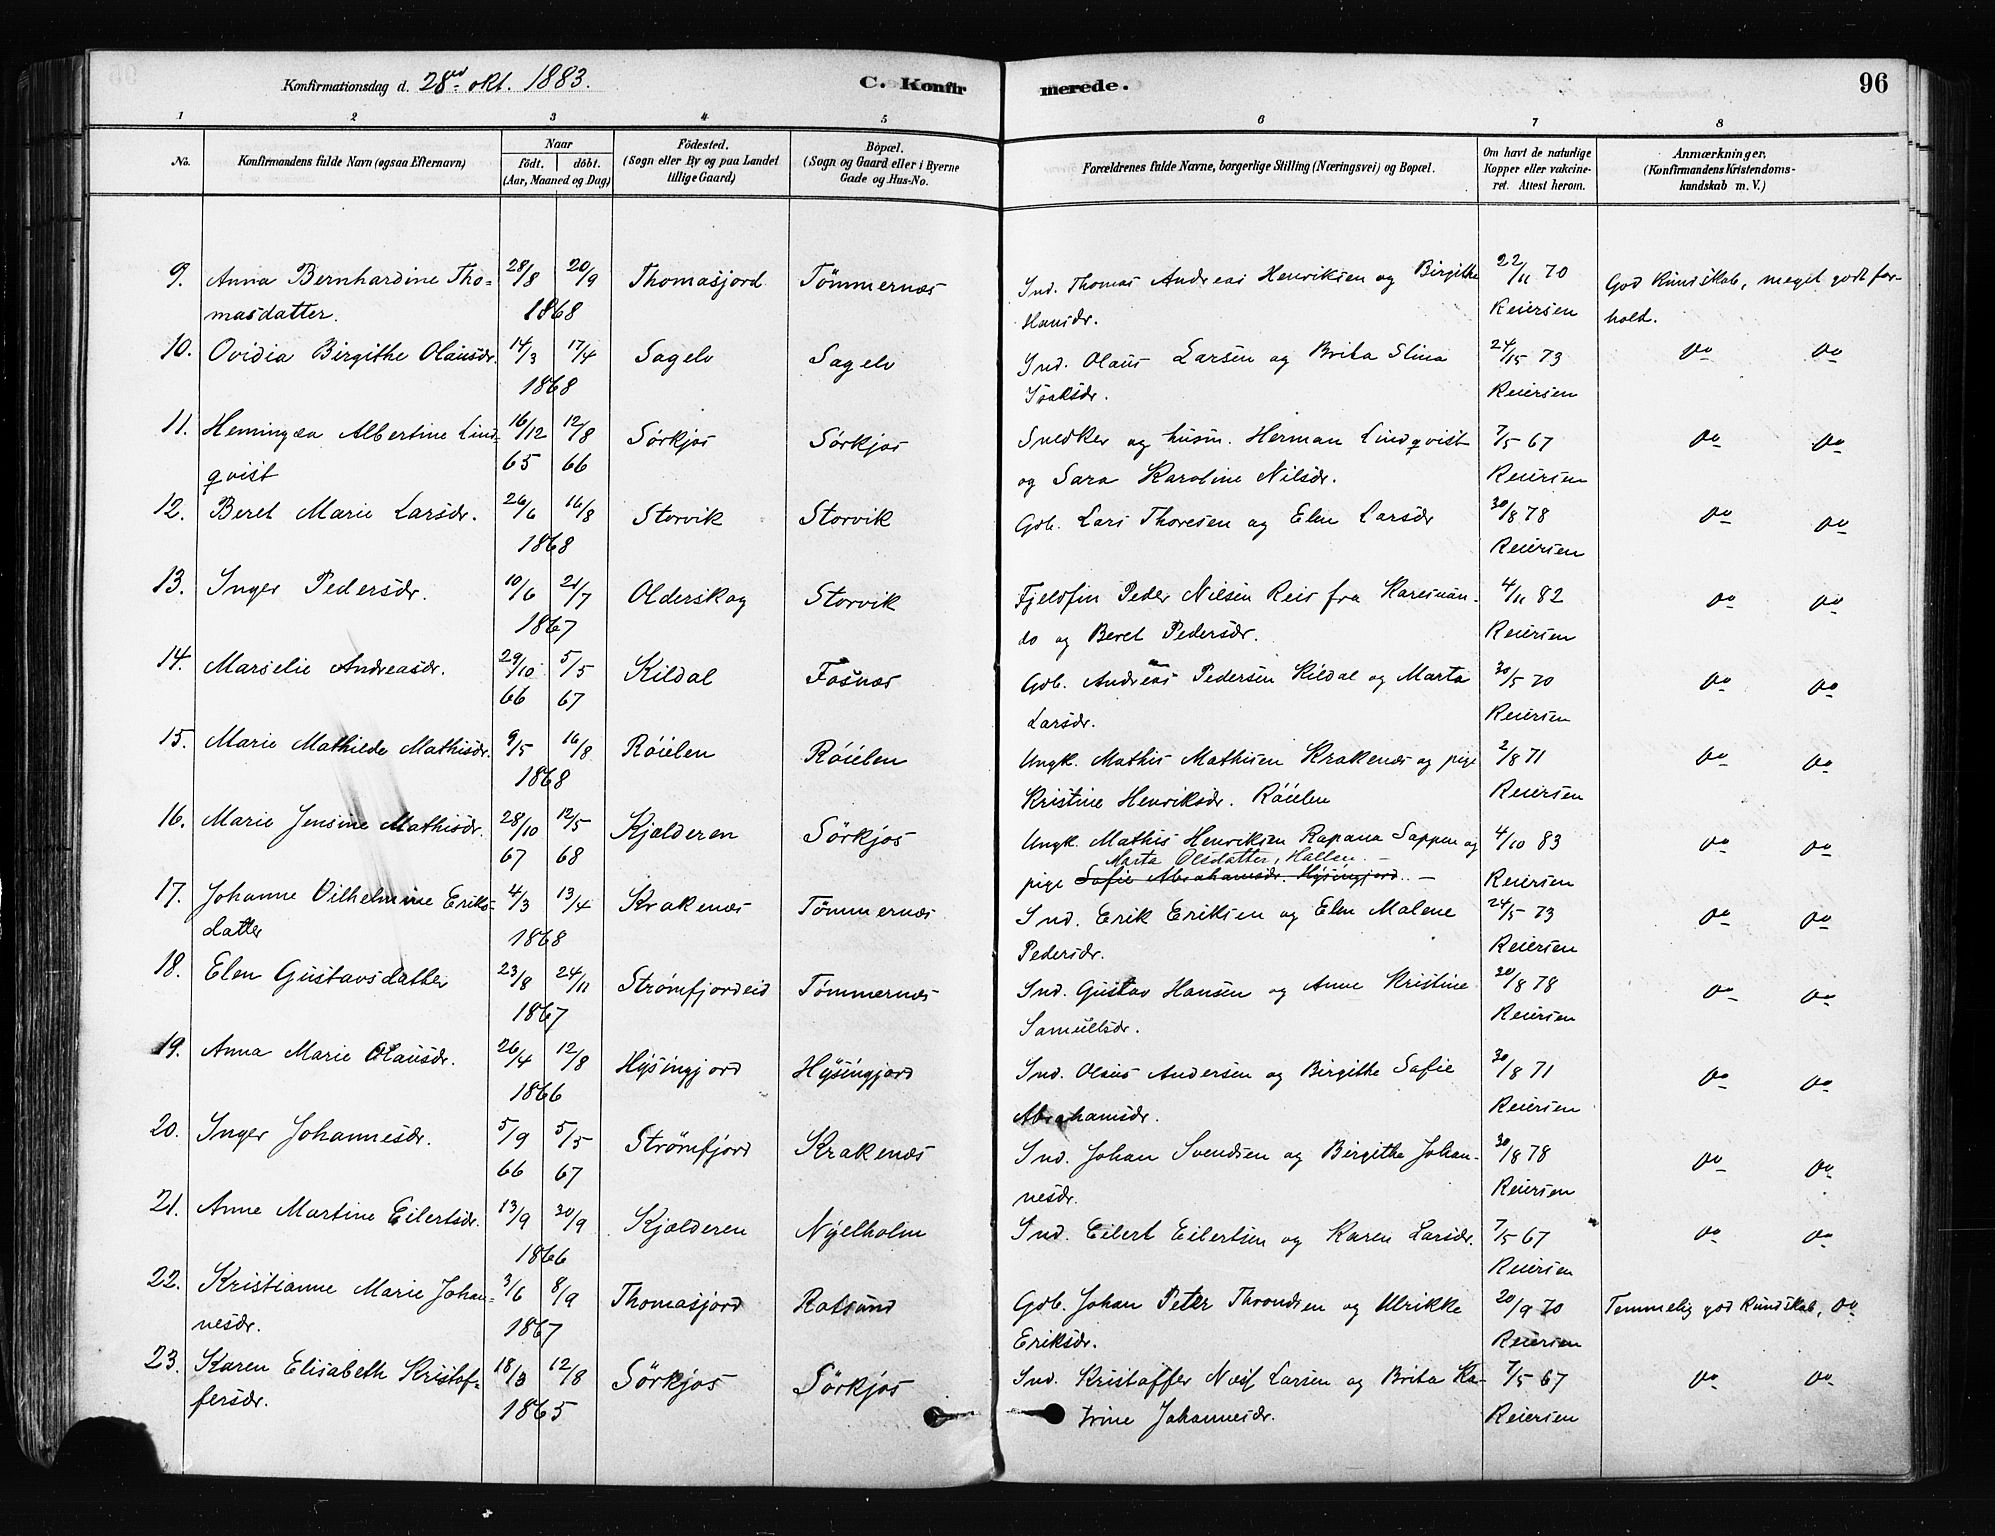 Konfirmationsdag d. 28de okt. 1883.
C. Konfirmerede.
96
1 2 3 4 5 6 7 8
No.
Konfirmandens fulde Navn (ogsaa Efternavn)
Naar
födt. döbt.
(Aar, Maaned og Dag)
Födested.
(Sogn eller By og paa Landet
tillige Gaard)
Bopæl.
(Sogn og Gaard eller i Byerne
Gade og Hus-No.
Forældrenes fulde Navne, borgerlige Stilling (Næringsvei) og Bopæl.
Om havt de naturlige
Kopper eller vakcine-
ret. Attest herom.
Anmærkninger.
(Konfirmandens Kristendoms-
kundskab m. V.)
9. Anna Bernhardine Tho- 28/8 20/9 Thomasjord Tömmernæs Ind. Thomas Andreas Henriksen og Birgithe 22/11 70 God Kundskab, meget godt for-
masdatter. 1868 Hansdr. Reiersen hold.
10. Ovidia Birgithe Olausdr. 14/3 17/4 Sagelv Sagelv Ind. Olaus Larsen og Brita Stina 24/15 73 do do
1868 Isaksdr. Reiersen
11. Hemingea Albertine Lind- 16/12 12/8 Sörkjos Sörkjos Snedker og husm. Herman Lindqvist 7/5 67 do do
qvist 65 66 og Sara Karoline Nilsdr. Reiersen
12. Beret Marie Larsdr. 26/6 16/8 Storvik Storvik Gdb. Lars Thoresen og Elen Larsdr 30/8 78 do do
1868 Reiersen
13. Inger Pedersdr. 10/6 21/7 Olderskog Storvik Fjeldfin Peder Nilsen Reis fra Karesuan- 4/11 82 do do
1867 do og Beret Pedersdr. Reiersen
14. Marselie Andreasdr. 29/10 5/5 Kildal Fosnæs Gdb. Andreas Pedersen Kildal og Marta 30/5 70 do do
66 67 Larsdr. Reiersen
15. Marie Mathilde Mathisdr. 9/5 16/8 Röielen Röielen Ungk. Mathis Mathisen Krakenæs og pige 2/8 71 do do
1868 Kristine Henriksdr. Röielen Reiersen
16. Marie Jensine Mathisdr. 28/10 12/5 Kjælderen Sörkjos Ungk. Mathis Henriksen Rapana Sappen og 4/10 83 do do
Marta Olsdatter, Hallen.
67 68 pige Sofie Abrahamsdr. Hysingjord. Reiersen
17. Johanne Vilhelmine Eriks- 4/3 13/4 Krakenæs Tömmernæs Ind. Erik Eriksen og Elen Malene 24/5 73 do do
datter 1868 Pedersdr. Reiersen
18. Elen Gustavsdatter 23/8 24/11 Strömfjordeid Tömmernæs Ind. Gustav Hansen og Anne Kristine 30/8 78 do do
1867 Samuelsdr. Reiersen
19. Anna Marie Olausdr. 26/4 12/8 Hysingjord Hysingjord Ind. Olaus Andersen og Birgithe Sofie 30/8 71 do do
1866 Abrahamsdr. Reiersen
20. Inger Johannesdr. 5/9 5/5 Strömfjord Krakenæs Ind. Johan Svendsen og Birgithe Johan- 30/8 78 do do
66 67 nesdr. Reiersen
21. Anne Martine Eilertsdr. 13/9 30/9 Kjælderen Nyelholm Ind. Eilert Eilertsen og Karen Larsdr. 7/5 67 do do
1866 Reiersen
22. Kristianne Marie Johan- 3/6 8/9 Thomasjord Rotsund Gdb. Johan Peter Throndsen og Ulrikke 20/9 70 Temmelig god Kundskab, do
nesdr. 1867 Eriksdr. Reiersen
23. Karen Elisabeth Kristof- 18/3 12/8 Sörkjos Sörkjos Ind. Kristoffer Næss Larsen og Brita Ka- 7/5 67 do do
fersdr. 1865 trine Johannesdr. Reiersen